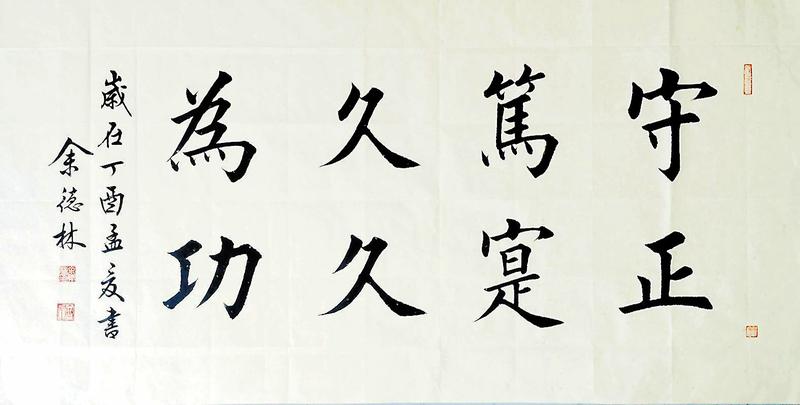 守正
篤寔
久久
為功
嵗在丁酉孟夏書
余徳林